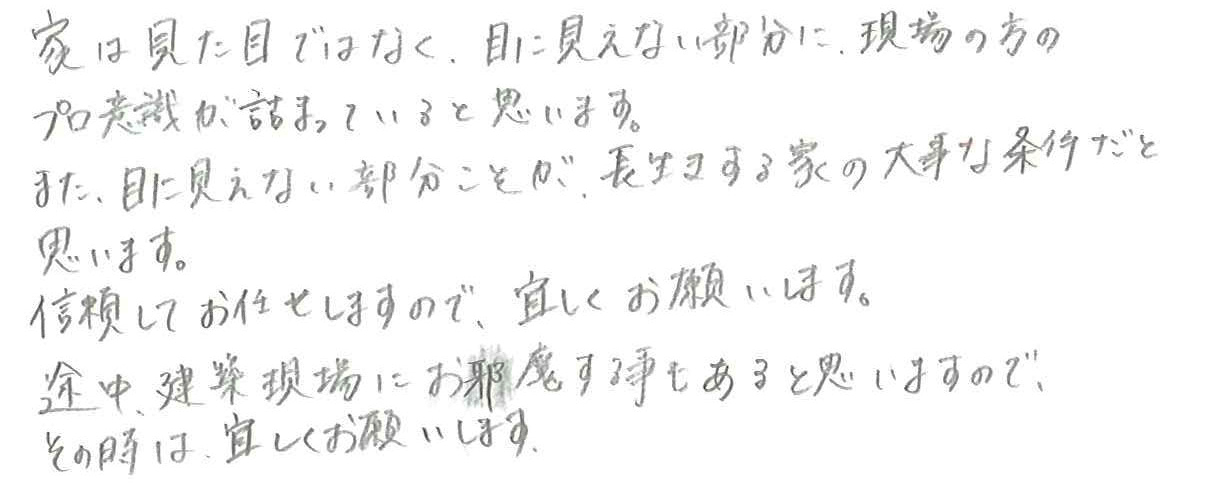 家は見た目ではなく、目に見えない部分に、現場の方の
プロ意識が詰まっていると思います。
また、目に見えない部分ことが、長生きする家の大事な条件だと
思います。
信頼してお任せしますので、宜しくお願いします。
途中、建築現場にお邪魔する事もあると思いますので、
その時は、宜しくお願いします。